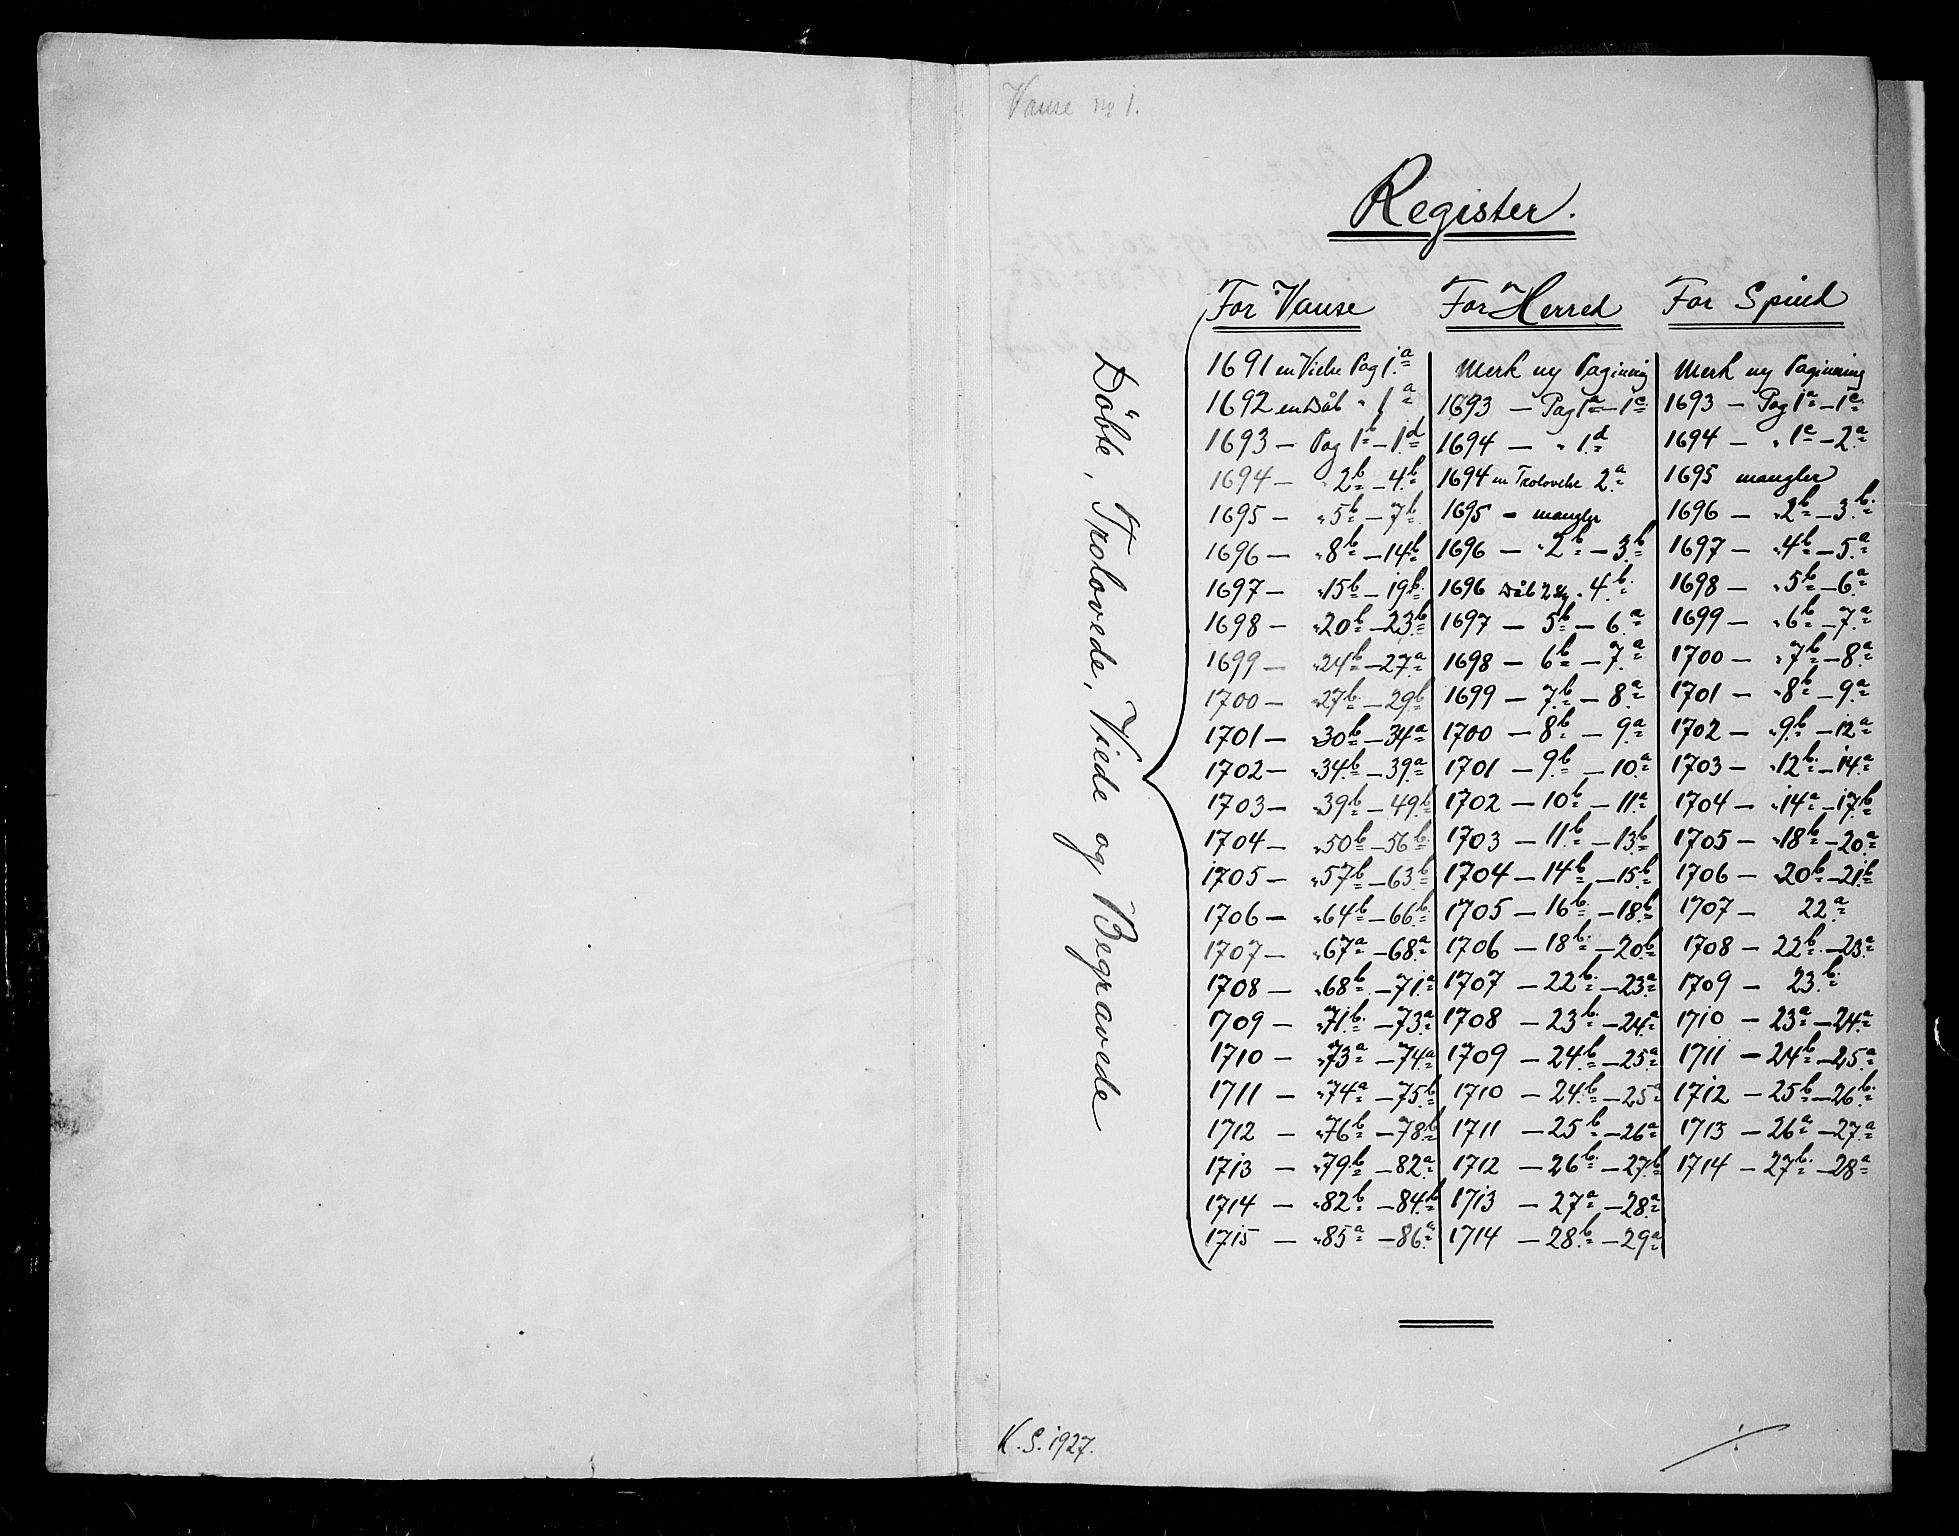 Vanse no 1.
Register.
For Vanse For Herred For Spind
Döbte, Trolovede, Viede og Begravede
1691 en Vielse Pag 1.a Merk ny Paginering Merk ny Paginering
1692 en Dåb " 1a 1693 — Pag 1a — 1c 1693 — Pag 1a — 1c
1693 — Pag 1b — 1d 1694 — " 1.d 1694 — " 1c — 2.a
1694 — " 2b — 4.b 1694 en Trolovelse 2.a 1695 mangler
1695 — " 5b — 7b 1695 — mangler 1696 — " 2b — 3.b
1696 — " 8b — 14b 1696 — " 2b — 3b 1697 — " 4b — 5.a
1697 — " 15b — 19b 1696 Dåb 4.b 1698 — " 5b — 6.a
1698 — " 20b — 23b 1697 — 5b — 6.a 1699 — " 6b — 7.a
1699 — " 24b — 27a 1698 — 6b — 7.a 1700 — " 7b — 8.a
1700 — " 27b — 29b 1699 — 7b — 8.a 1701 — " 8b — 9.a
1701 — " 30b — 34a 1700 — 8b — 9a 1702 — " 9b — 12a
1702 — " 34b — 39a 1701 — 9b — 10.a 1703 — " 12b — 14a
1703 — " 39b — 49b 1702 — 10b — 11a 1704 — " 14a — 17b
1704 — " 50b — 56b 1703 — 11b — 13b 1705 — " 18b — 20a
1705 — " 57b — 63b 1704 — 14b — 15b 1706 — " 20b — 21b
1706 — " 64b — 66b 1705 — 16b — 18b 1707 — 22a
1707 — " 67a — 68a 1706 — 18b — 20b 1708 — 22b — 23a
1708 — " 68b — 71a 1707 — 22b — 23a 1709 — 23b
1709 — " 71b — 73a 1708 — 23b — 24a 1710 — 23a — 24a
1710 — " 73a — 74a 1709 — 24b — 25a 1711 — 24b — 25a
1711 — " 74a — 75b 1710 — 24b — 25a 1712 — 25b — 26b
1712 — " 76b — 78b 1711 — 25b — 26a 1713 — 26a — 27a
1713 — " 79b — 82a 1712 — 26b — 27b 1714 — 27b — 28a
1714 — " 82b — 84b 1713 — 27a — 28a
1715 — " 85a — 86a 1714 — 28b — 29a
K. S. 1927.